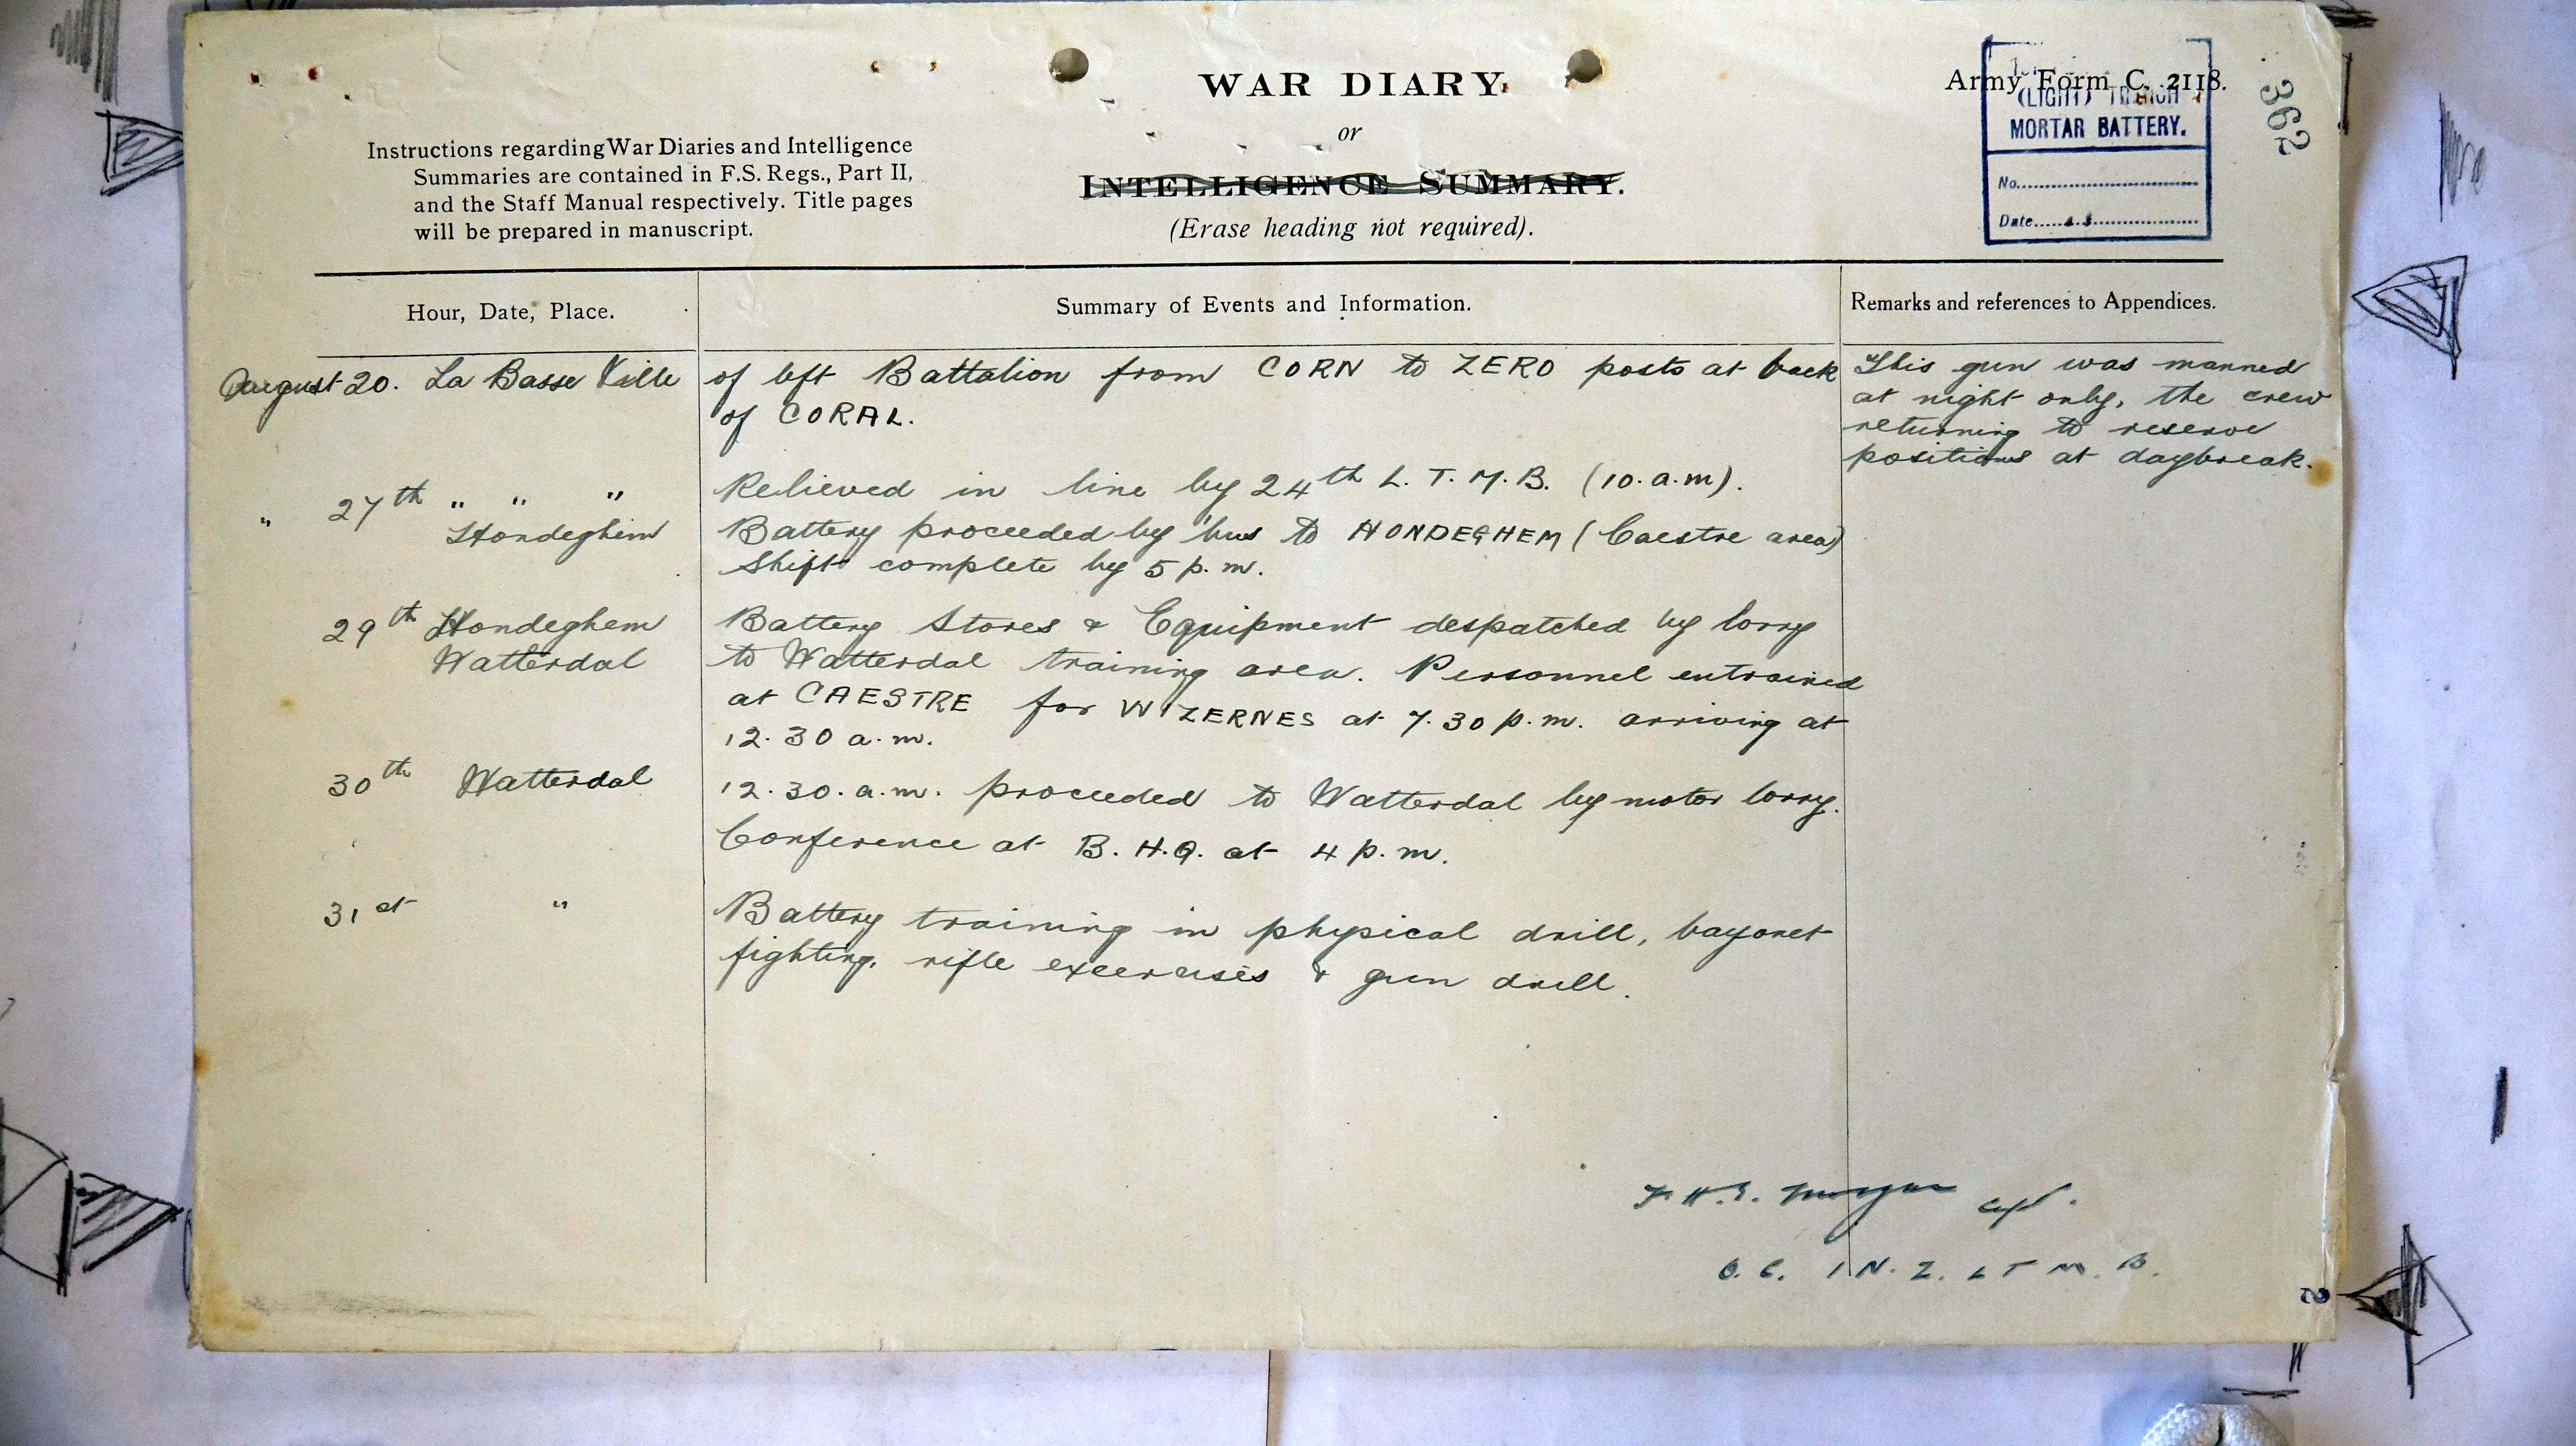 WAR DIARY.
or
INTELLIGENCE SUMMARY.
(Erase heading not required).
Instructions regarding War Diaries and Intelligence
Summaries are contained in F.S. Regs., Part II,
and the Staff Manual respectively. Title pages
will be prepared in manuscript.
Army Form C. 2118.
(LIGHT) TRENCH
MORTAR BATTERY.
No.
Date
362
Hour, Date, Place.
Summary of Events and Information.
Remarks and references to Appendices.
August 20. La Basse Ville
of left Battalion from CORN to ZERO posts at back
of CORAL.
This gun was manned
at night only, the crew
returning to reserve
positions at daybreak.
" 27th " " "
Relieved in line by 24th L. T. M. B. (10. a.m).
Hondeghem
Battery proceeded by 'bus to HONDEGHEM (Caestre area)
Shift complete by 5 p.m.
29th Hondeghem
Watterdal
Battery Stores & Equipment despatched by lorry
to Watterdal training area. Personnel entrained
at CAESTRE for WIZERNES at 7.30 p.m. arriving at
12.30 a.m.
30th Watterdal
12.30. a.m. proceeded to Watterdal by motor lorry.
Conference at B. H.Q. at 4 p.m.
31st "
Battery training in physical drill, bayonet
fighting, rifle excercises & gun drill.
F. H. E. Morgan Capt.
O. C. 1 N. Z. L T M. B.
2